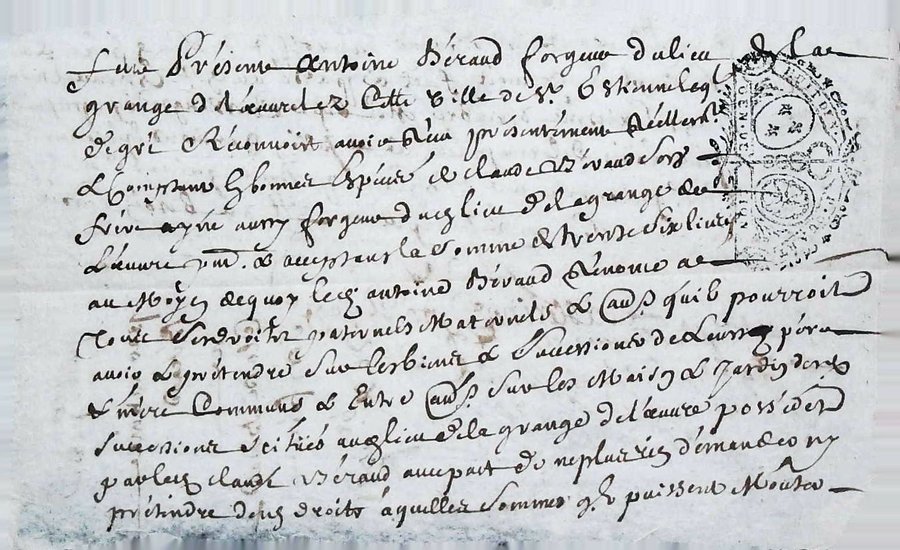 fut Présent Antoine Béraud forgeur du lieu de la
grange de l'œuvre lez Cette Ville de St Estienne leql
de gré Réconnoit avoir Réçu présentément Réellemt
& Comptant En bonnes Espéces de Claude Béraud son
frére ayné aussy forgeur dud lieu de la grange de
L'œuvre pnt & acceptant la Somme de trente Six livres
au Moyen de quoy led antoine Béraud Rénonce a
Tous Ses droits paternels Maternels & aus qu'il pourroit
avoir & prétendre Sur les biens & Successions de Leurs pére
& mére Communs & Entre aus Sur les Maison & Jardin des
Successions Scitués aud lieu de la grange de l'œuvre possédés
par led Claude Béraud avec pact de ne plus rien démander ny
prétendre desd droits a quelles Sommes qls puissent Monter